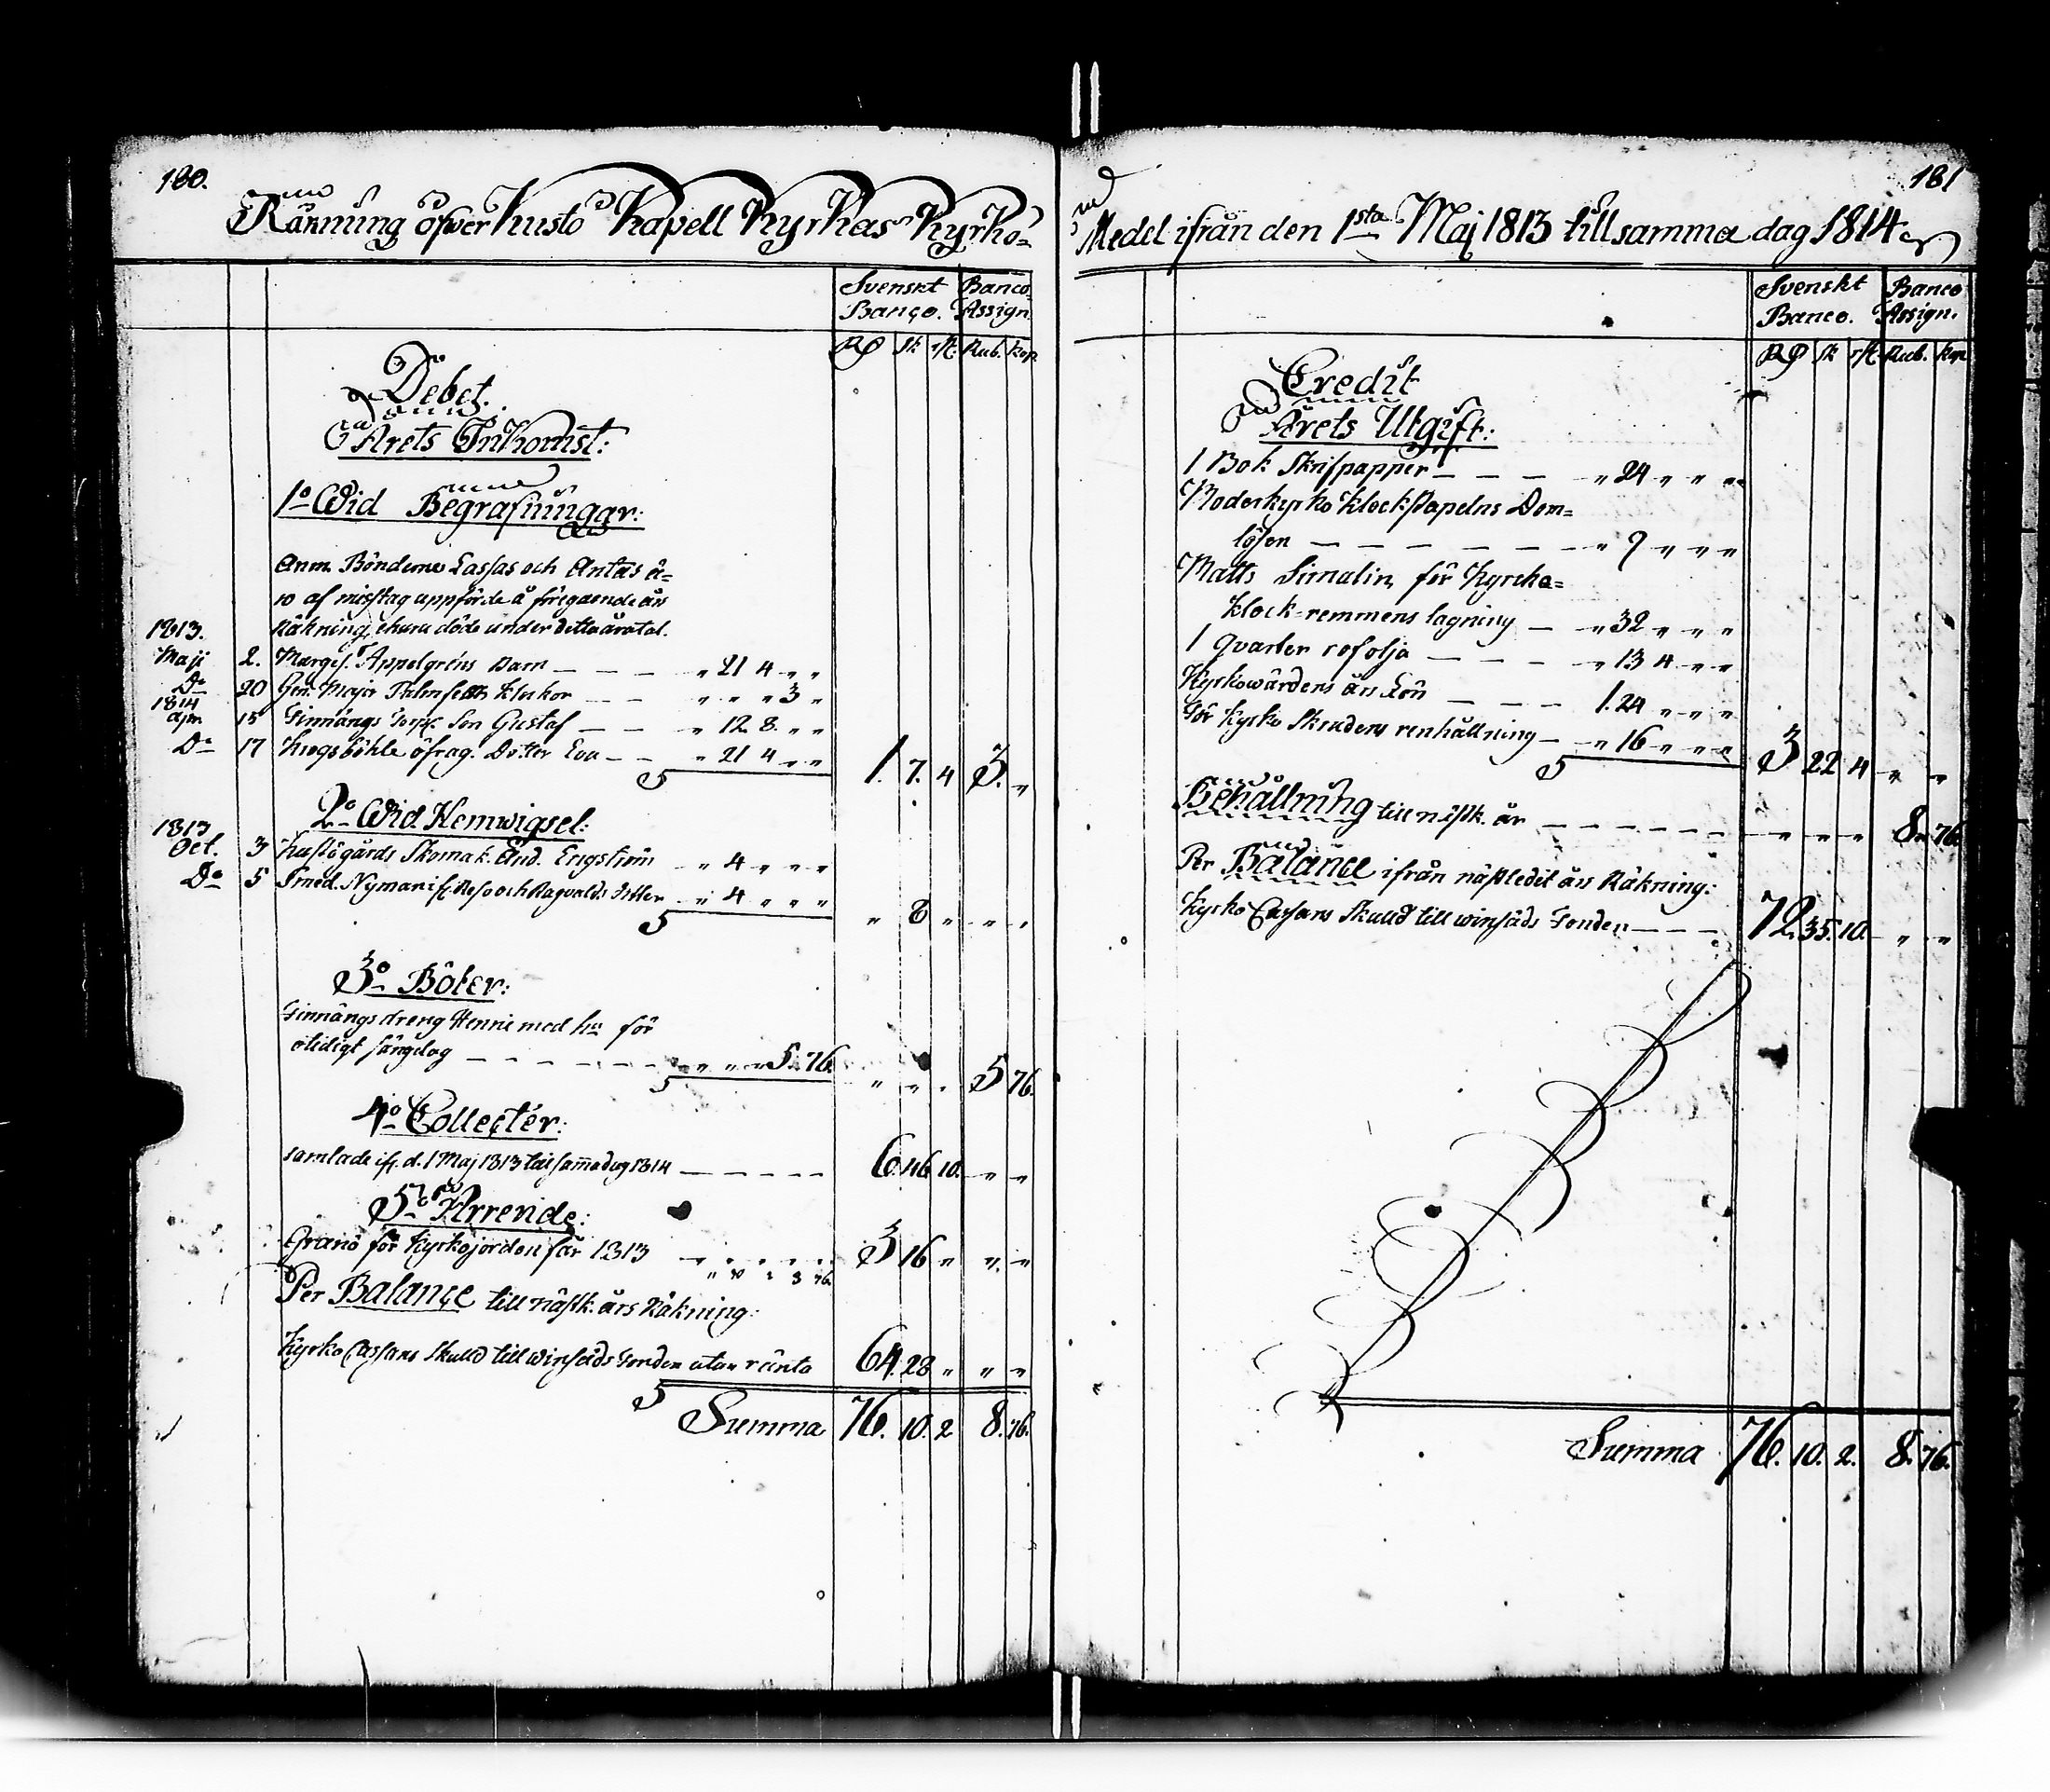 180.
Räkning öfwer Kustö Kapell Kyrkas Kyrko=
Svenskt Banco.
Banco Assign.
Rd sk rst. Rub. Kop.
Debet.
Årets Inkomst:
1o Wid Begrafningar:
Anm. Bönderne Lassas och Antas ä=
ro af misstag uppförde å föregaende års
Räkning, ehuru döde under detta åratal.
1813.
Maji 2. Margef. Appelgréns Barn — — — " 21 4 " "
Do 20 Gen. Major Palmfelts klockor — — " " " 3 "
1814
Apr. 15 Ginnängs Torp. Son Gustaf — — " 12 8 " "
Do 17 Krogsböhle öfrag. Dotter Eva — — " 21 4 " "
S 1. 7. 4 3. "
2o Wid Hemwigsel:
1813
Oct. 3 Kustögårds Skomak. And. Engström " 4 " " "
Do 5 Smed. Nyman if. Reso och Ragvalds Dotter " 4 " " "
S " 8 " " "
3o Böter:
Ginnängs dreng Henric med hu för
otidigt sänglag — — — — — " " " 5. 76.
S " " " 5 76.
4o Collecter:
samlade ifr. d. 1 Maj 1813 till samma dag 1814 — — — — 6. 46 10. " "
5o Arrende:
Granö för Kyrkojorden för 1813 3 16 " " "
" 8 " 3 76
Per Balance till näst k. års Räkning:
Kyrko Cassans Skuld till winsäds Fonden utan ränta 64. 28 " " "
S Summa 76. 10. 2 8. 76.
181
Medel ifrån den 1sta Maj 1813 till samma dag 1814
Svenskt Banco.
Banco Assign.
Rd sk rst. Rub. Kop
Credit
Årets Utgift:
1 Bok Skrifpapper — — — " 24 " " "
Moderkyrko Klockstapelns Dom=
lösen — — — — — — " 9 " " "
Matts Simalin för Kyrcko=
klock-remmens lagning — " 32 " " "
1 Qvarter rofolja — — — " 13 4 " "
Kyrkowärdens års Lön — — — 1. 24 " " "
För Kyrko Skrudens renhållning — " 16 " " "
S 3 22 4 " "
Behållning till näst k. år — — — — — — " " " 8. 76.
Per Balance ifrån nästledit års Räkning:
Kyrko Cassans Skuld till winsäds Fonden — — — 72. 35. 10. " "
Summa 76. 10. 2. 8. 76.